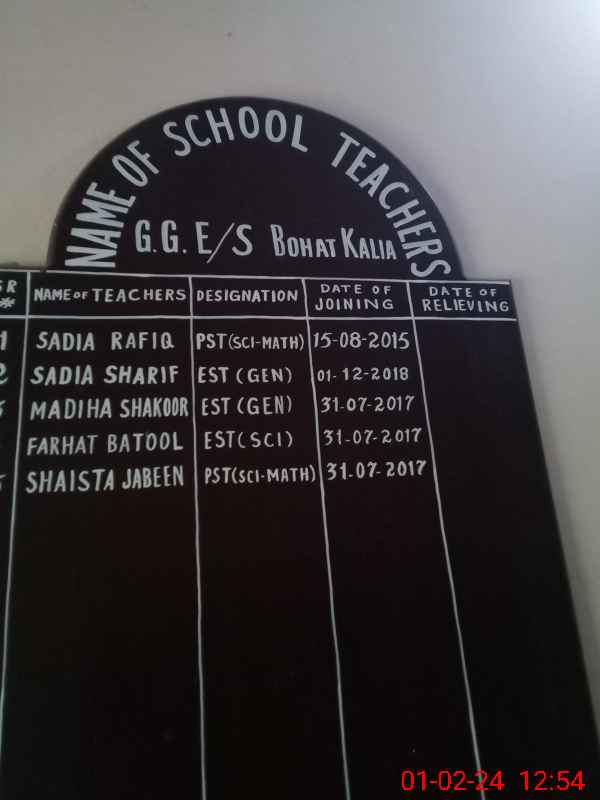 NAME OF SCHOOL TEACHERS
G.G. E/S BOHAT KALIA
SR # NAME OF TEACHERS DESIGNATION DATE OF JOINING DATE OF RELIEVING
1 SADIA RAFIQ PST(SCI-MATH) 15-08-2015
2 SADIA SHARIF EST (GEN) 01-12-2018
MADIHA SHAKOOR EST (GEN) 31-07-2017
FARHAT BATOOL EST(SCI) 31-07-2017
SHAISTA JABEEN PST(SCI-MATH) 31.07-2017
01-02-24 12:54